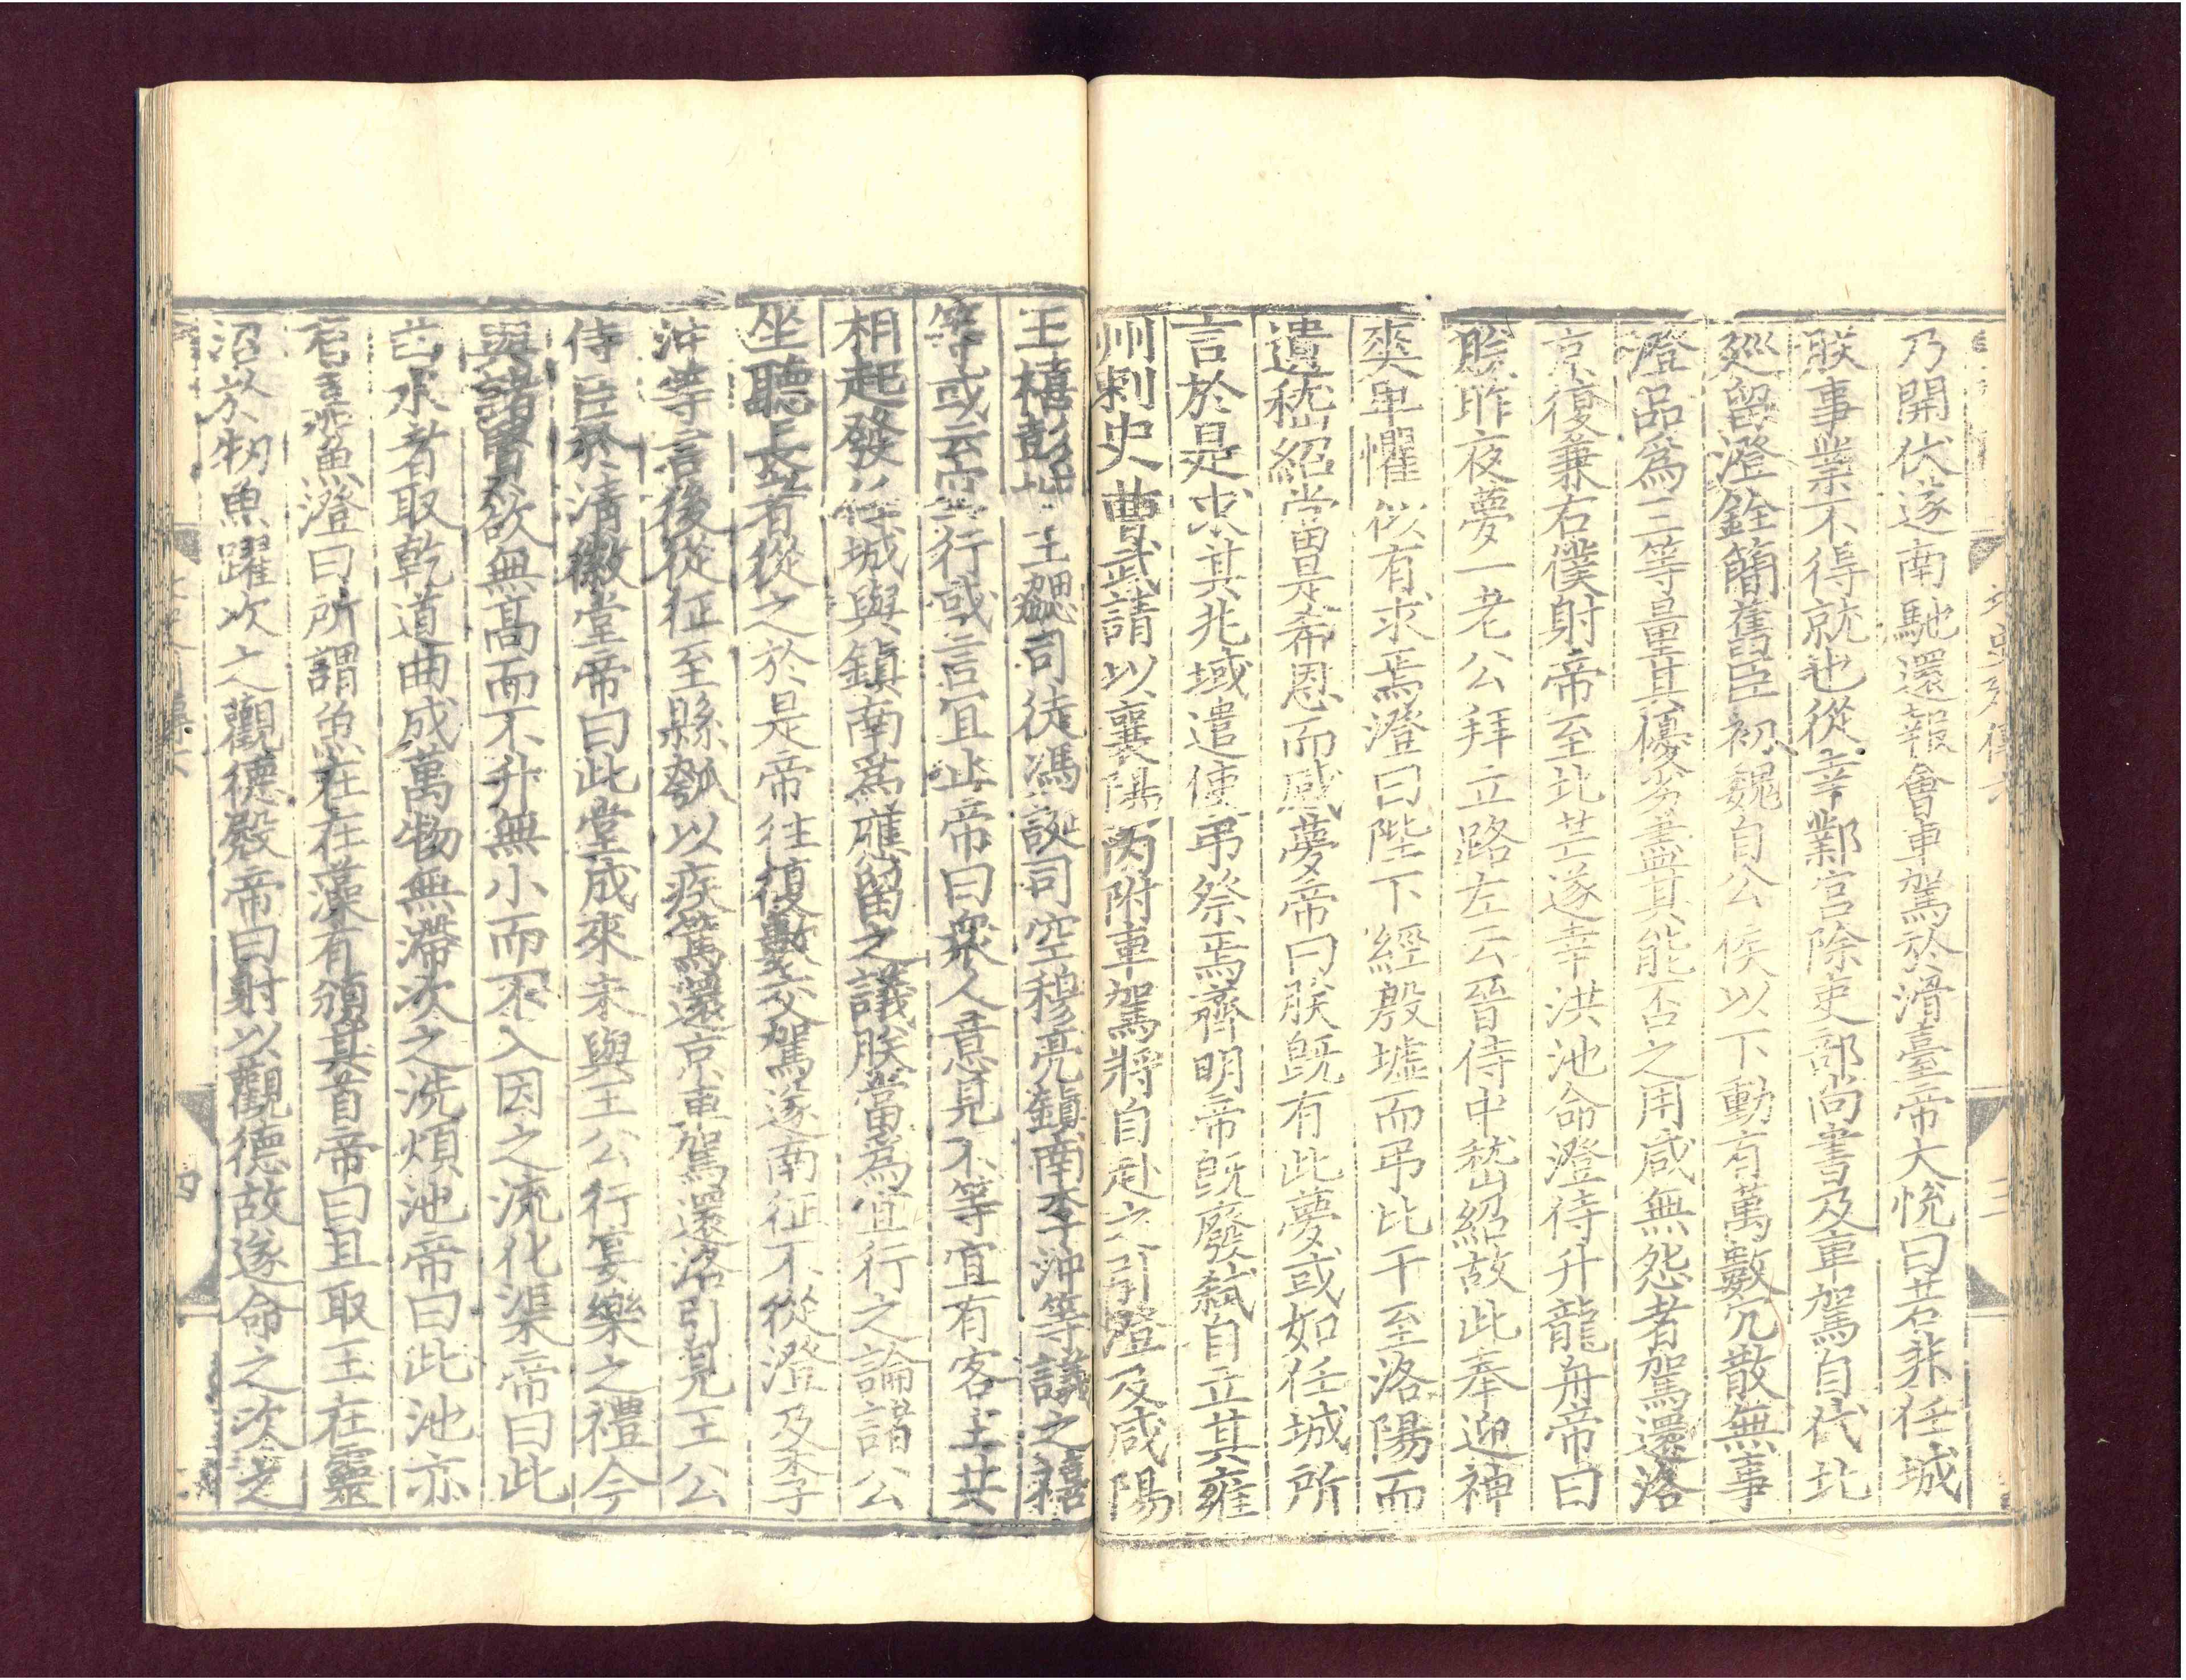 乃開伏遂南馳還報會車駕於滑臺帝大悅曰若非任城
朕事業不得就也從幸鄴宮除吏部尚書及車駕自代北
巡留澄銓簡舊臣初魏自公侯以下動有萬數冗散無事
澄品爲三等量其優劣盡其能否之用咸無怨者駕還洛
京復兼右僕射帝至北芒遂幸洪池命澄侍升龍舟帝曰
朕昨夜夢一老公拜立路左云晉侍中嵇紹故此奉迎神
爽卑懼似有求焉澄曰陛下經殷墟而弔比干至洛陽而
遺嵇紹當是希恩而感夢帝曰朕既有此夢或如任城所
言於是求其兆域遣使弔祭焉齊明帝既廢弒自立其雍
州刺史曹武請以襄陽內附車駕將自赴之引澄及咸陽
王禧彭城王勰司徒馮誕司空穆亮鎮南李沖等議之禧
等或云宜行或言宜止帝曰衆人意見不等宜有客主共
相起發任城與鎮南爲應留之議朕當爲宜行之論諸公
坐聽長者從之於是帝往復數交駕遂南征不從澄及李
沖等言後從征至縣瓠以疾篤還京車駕還洛引見王公
侍臣於清徽堂帝曰此堂成來未與王公行宴樂之禮今
與諸賢欲無高而不升無小而不入因之流化渠帝曰此
曲水者取乾道曲成萬物無滯次之洗煩池帝曰此池亦
有嘉魚澄曰所謂魚在在藻有頒其首帝曰且取王在靈
沼於牣魚躍次之觀德殿帝曰射以觀德故遂命之次之
四